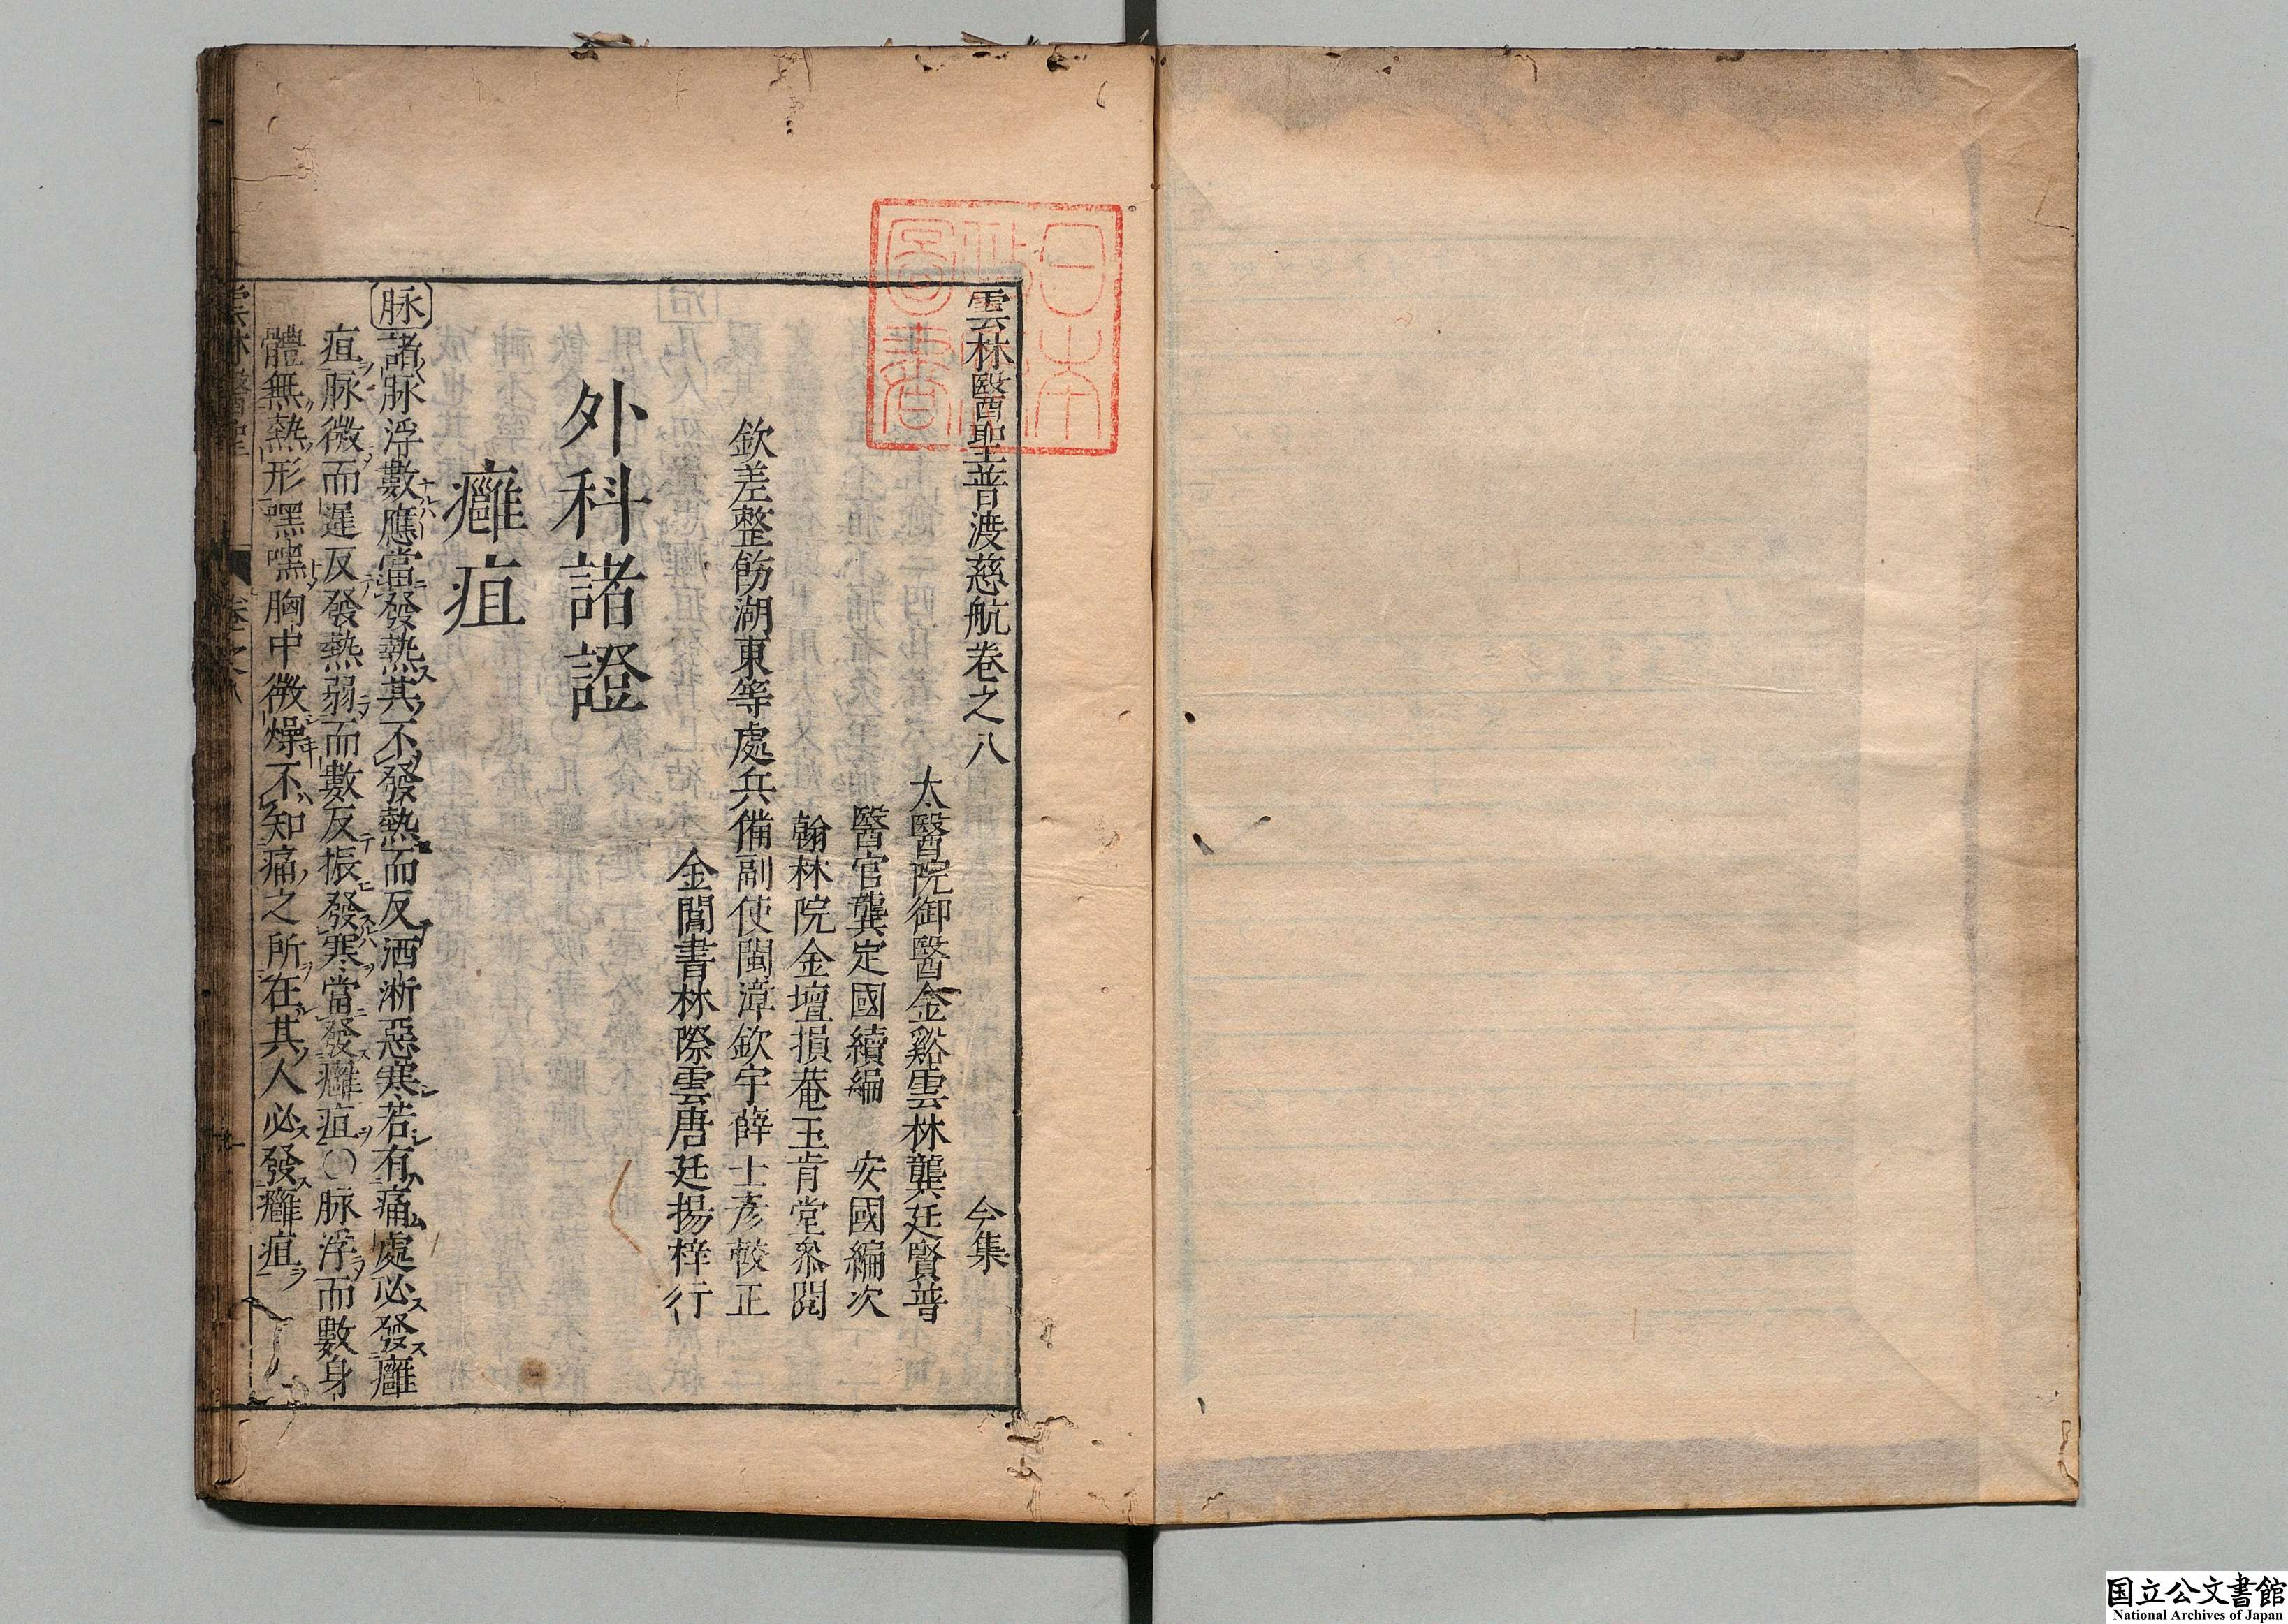 雲林醫聖普渡慈航卷之八
今集
太醫院御醫金谿雲林龔廷賢普
醫官龔定國續編 安國編次
翰林院金壇損菴王肯堂叅閱
欽差整飭湖東等處兵備副使閩漳欽宇薛士彥較正
金閶書林際雲唐廷揚梓行
外科諸證
癰疽
脉諸脉浮數應當發熱其不發熱而反洒淅惡寒若有痛處必發癰
疽脉微而遲反發熱弱而數反振發寒當發癰疽〇脉浮而數身
體無熱形嘿嘿胸中微燥不知痛之所在其人必發癰疽
雲林醫聖 卷之八
日本
圖書
国立公文書館
National Archives of Japan